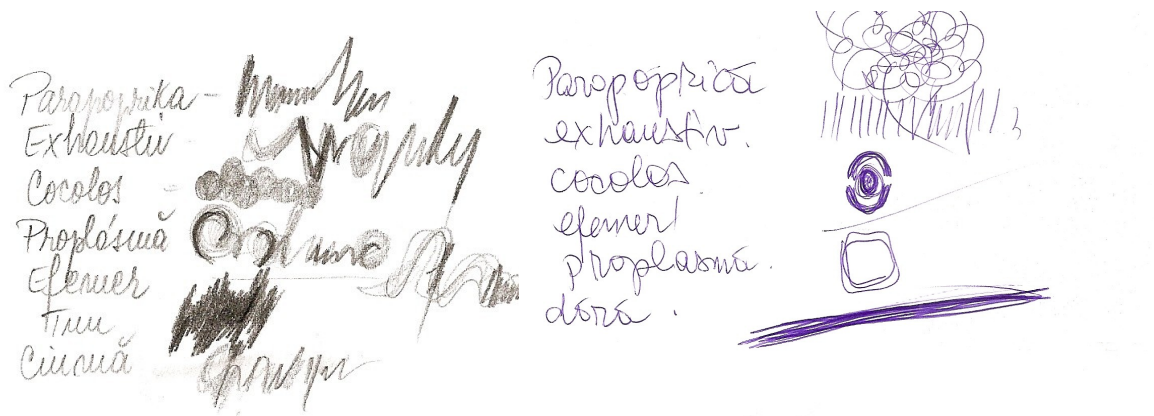 Parapoprika -
Exhaustiv
Cocolos -
Proplasmă
Efemer
Tuu
Ciumă
Parapoprică
exhaustiv.
cocolos.
efemer
proplasmă.
dâră.